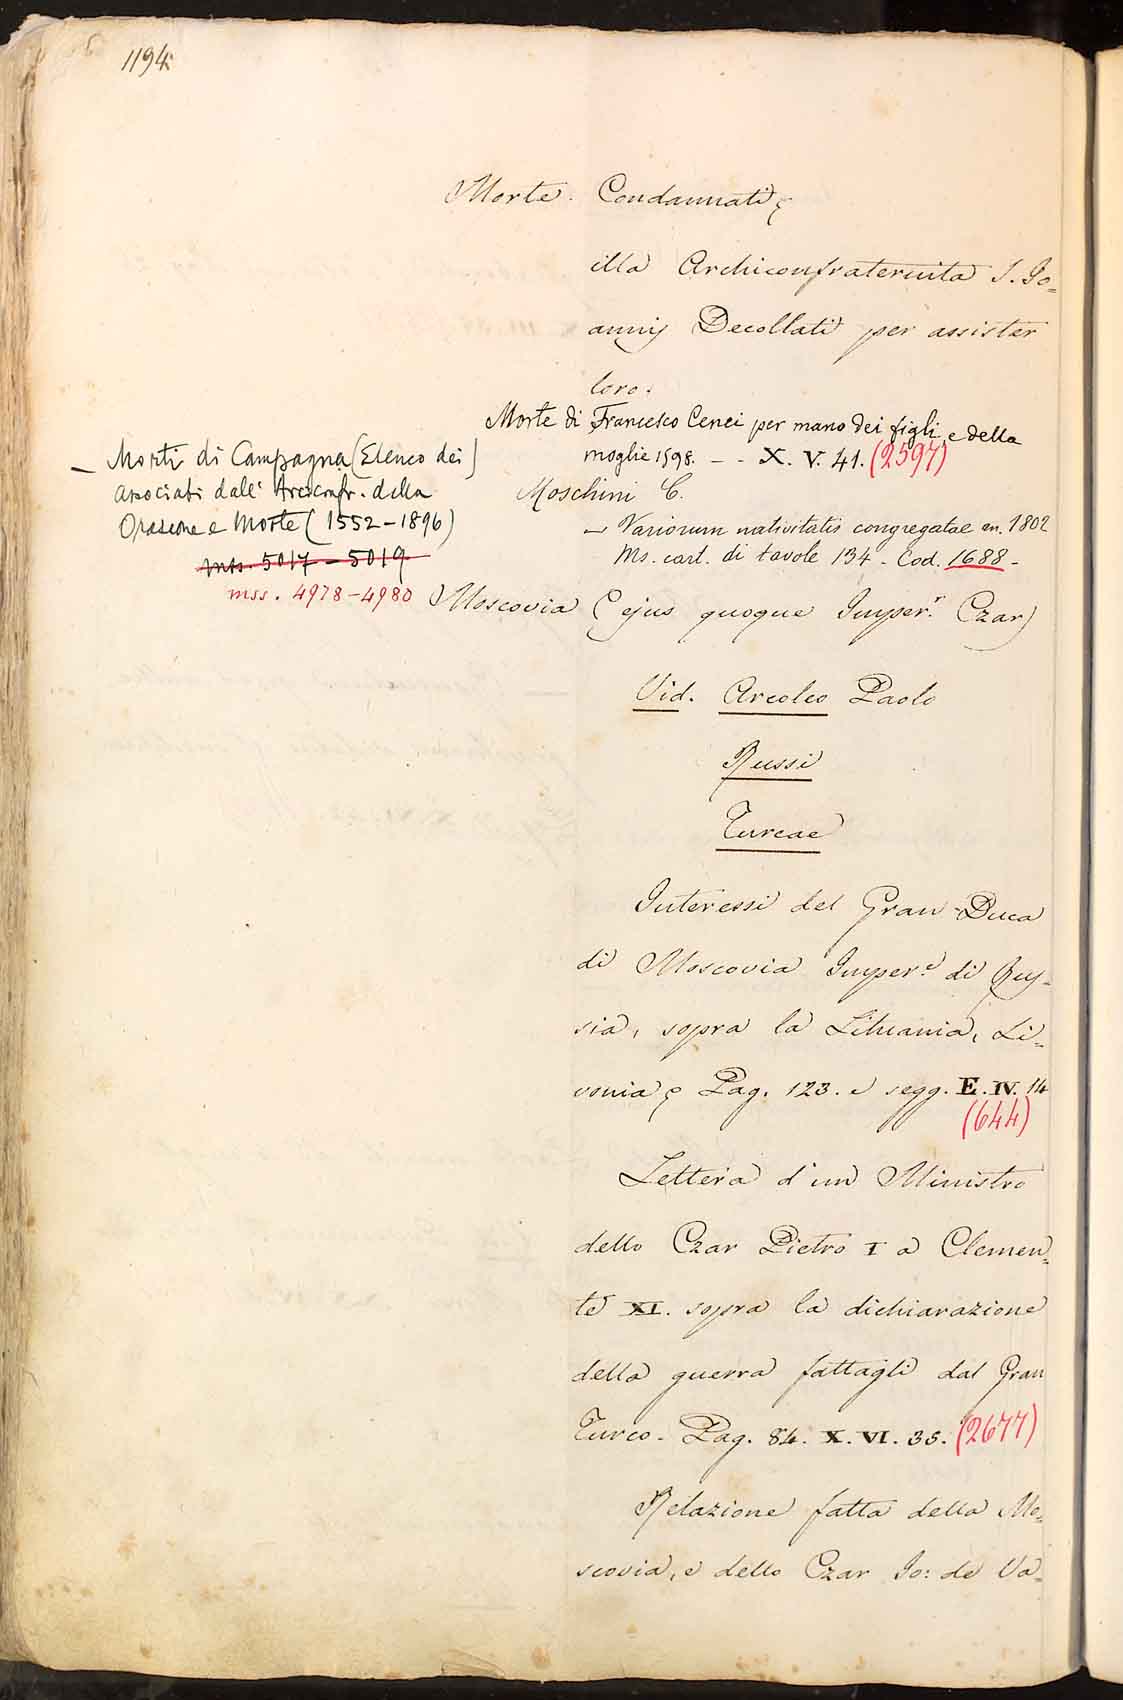 1194
Morte. Condannati,
illa Archiconfraternita S. Jo=
annis Decollati per assister
loro.
Morte di Francesco Cenci per mano dei figli e della
moglie 1598. - - X. V. 41. (2597)
— Morti di Campagna (Elenco dei
associati dall' Arciconfr. della
Orazione e Morte (1552-1896)
mss. 5017 - 5019
mss. 4978-4980
Moschini C.
— Variorum nativitatis congregatae an. 1802
Ms. cart. di tavole 134 - Cod. 1688 -
Moscovia (ejus quoque Imper.r Czar)
Vid. Arcoleo Paolo
Russi
Turcae
Interessi del Gran-Duca
di Moscovia Imper.e di Rus=
sia, sopra la Lituania, Li=
vonia, Pag. 123. e segg. E. IV. 14
(644)
Lettera d'un Ministro
dello Czar Pietro I a Clemen=
te XI. sopra la dichiarazione
della guerra fattagli dal Gran
Turco. Pag. 84. X. VI. 35. (2677)
Relazione fatta della Mo=
scovia, e dello Czar Jo: de Va=